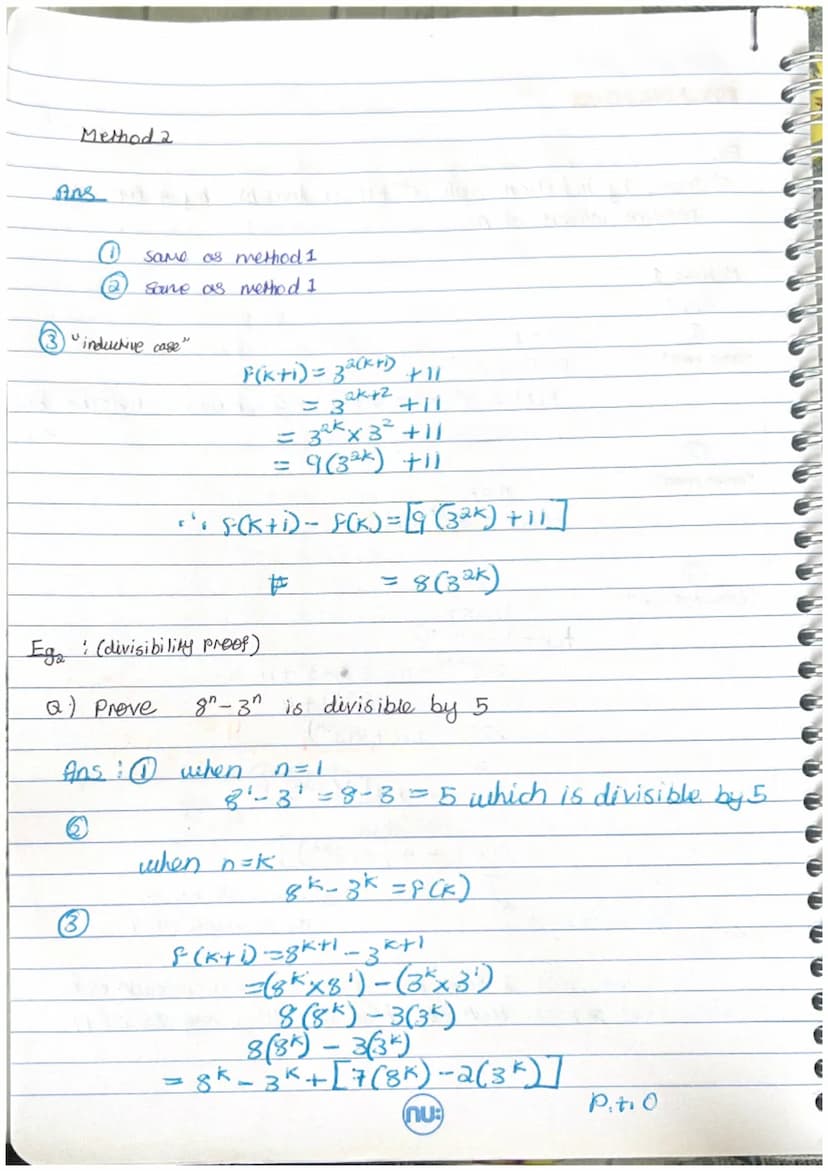 Method 2
Ans
① same as method 1
② same as method 1
③ "inductive case"
f(k+1) = 3^{2(k+1)} + 11
= 3^{2k+2} + 11
= 3^{2k} × 3^2 + 11
= 9(3^{2k}) + 11
∴ f(k+1) - f(k) = [9(3^{2k}) + 11]
= 8(3^{2k})
Eg₂ : (divisibility proof)
Q) Prove 8^n - 3^n is divisible by 5
Ans : ① when n=1
8^1 - 3^1 = 8 - 3 = 5 which is divisible by 5
②
when n=k
8^k - 3^k = f(k)
③
f(k+1) = 8^{k+1} - 3^{k+1}
= (8^k × 8^1) - (3^k × 3^1)
8(8^k) - 3(3^k)
8(8^k) - 3(3^k)
= 8^k - 3^k + [7(8^k) - 2(3^k)]
P.t.O
nu: